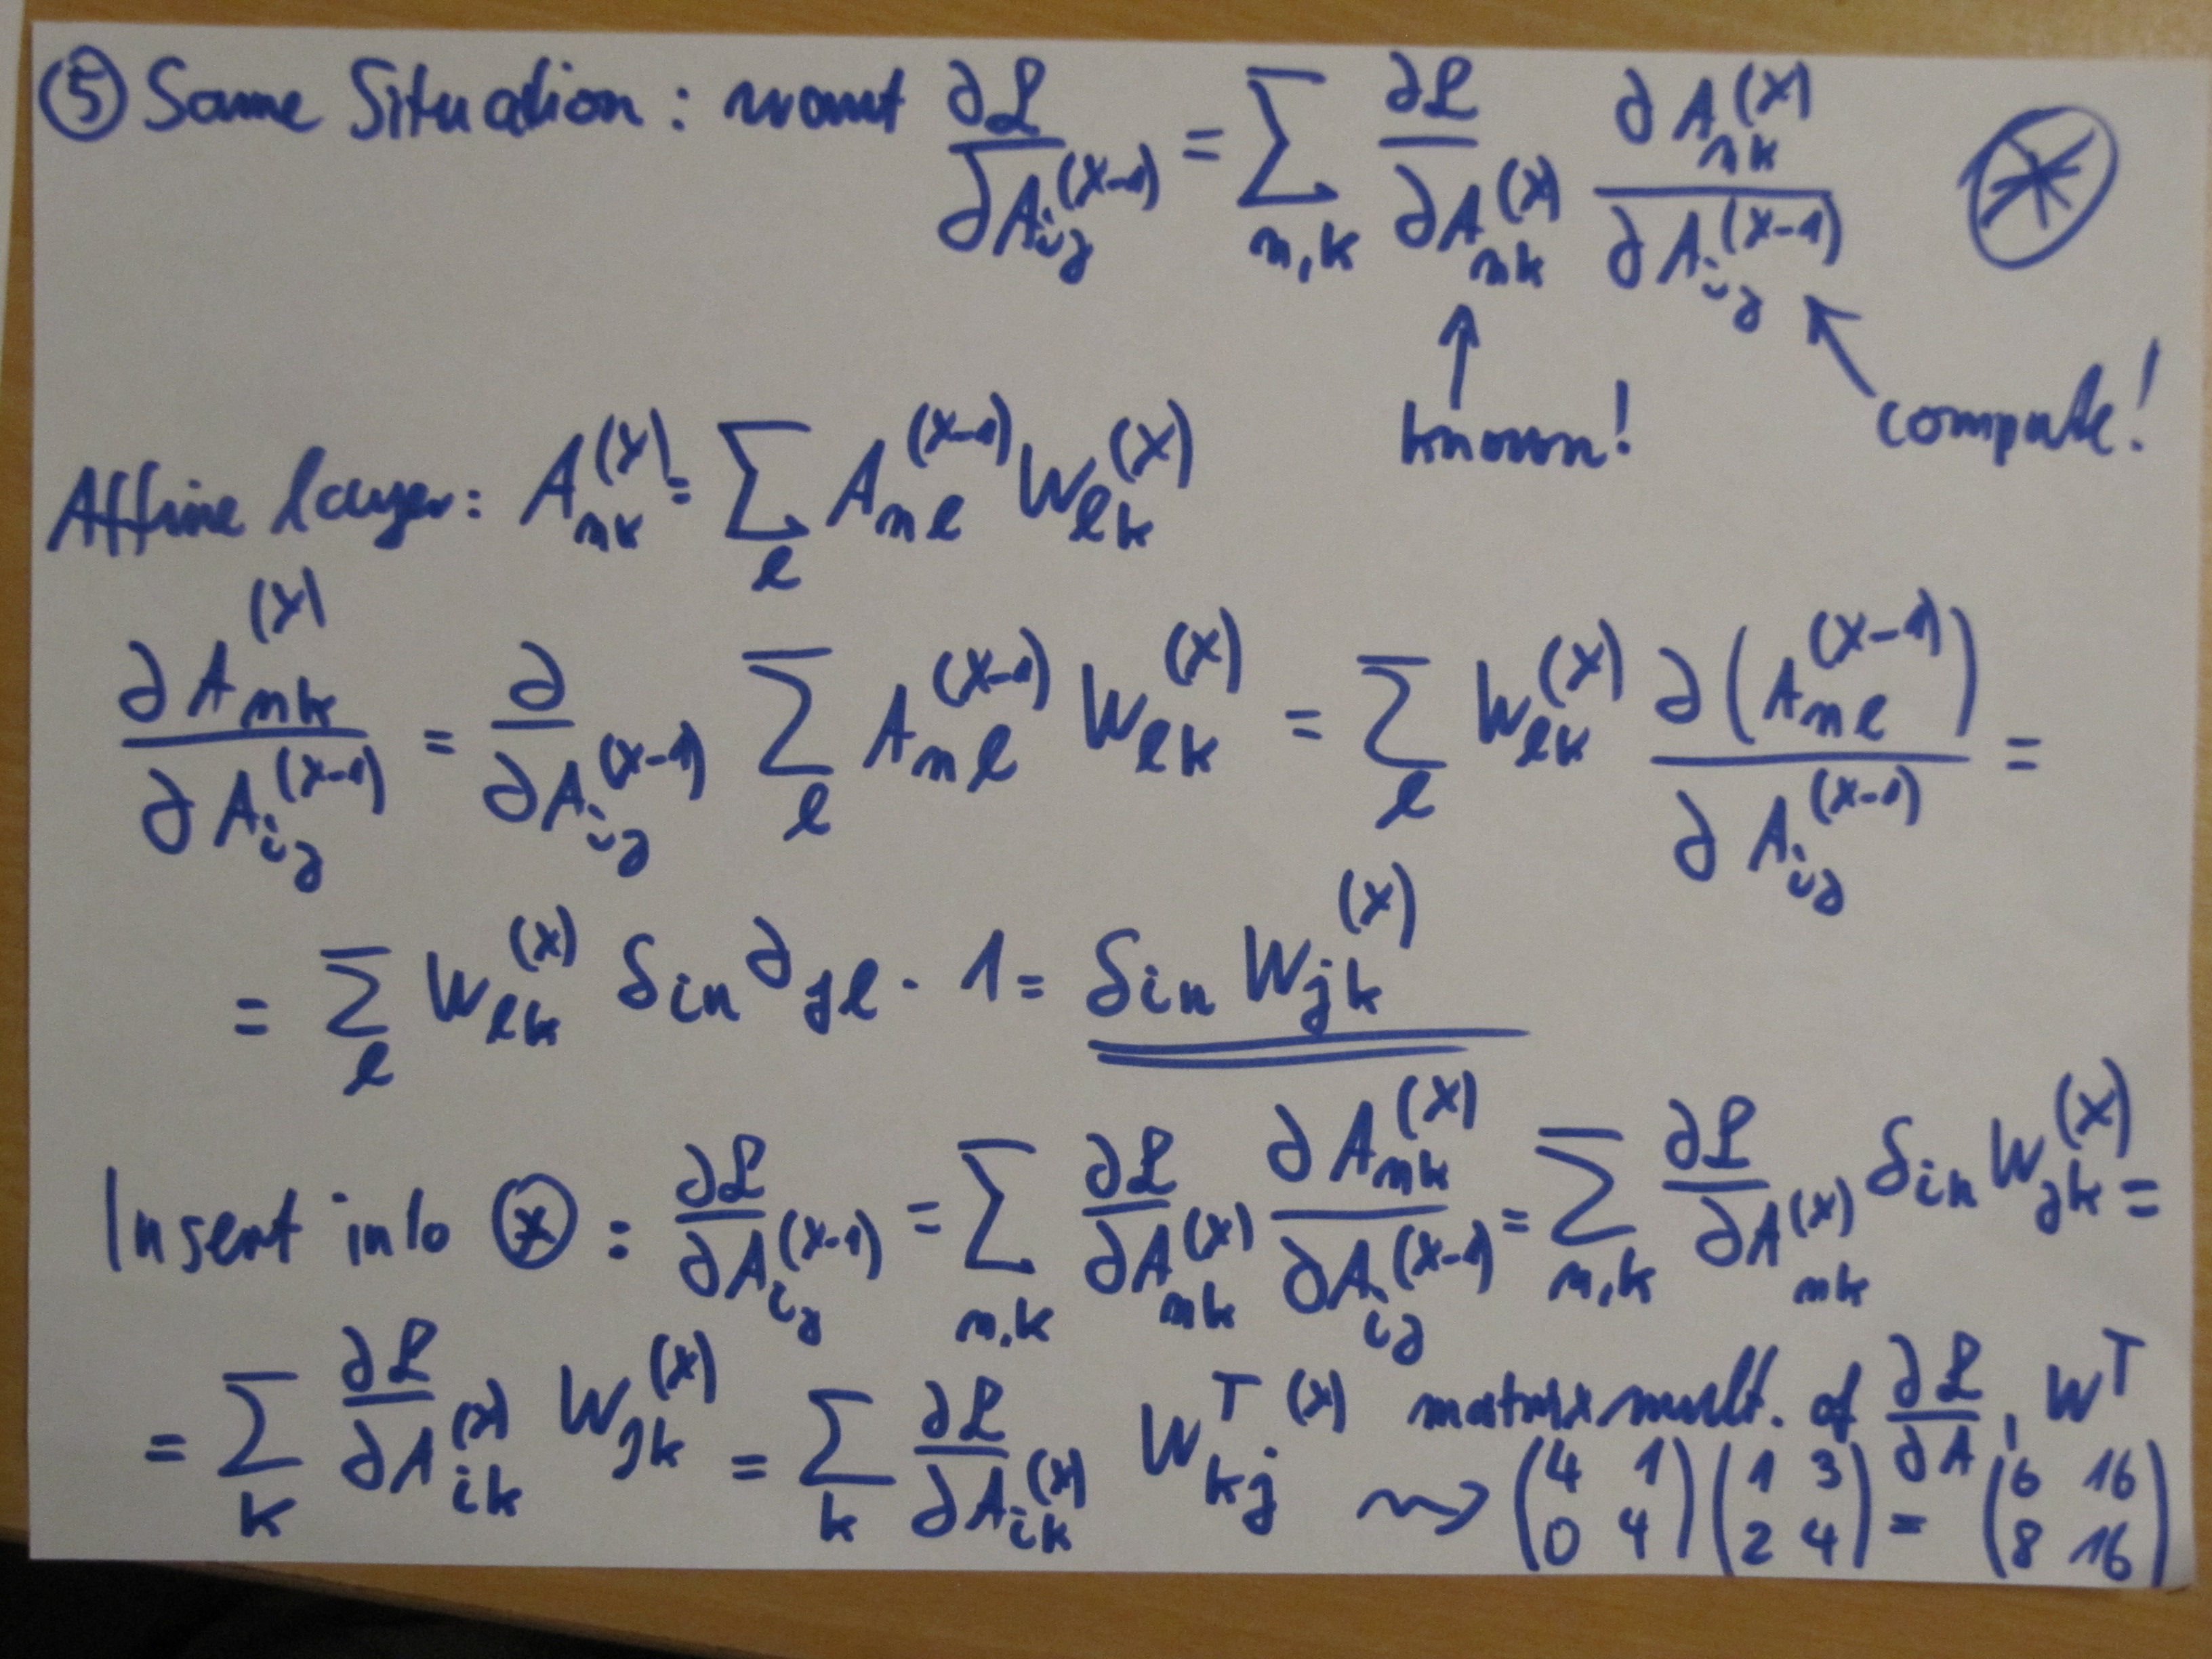 ⑤ Same Situation: want ∂ℒ/∂A_ij^(x-1) = Σ_{n,k} ∂ℒ/∂A_nk^(x) ∂A_nk^(x)/∂A_ij^(x-1) ⊛
↑ known! ↖ compute!
Affine layer: A_nk^(x) = Σ_l A_nl^(x-1) W_lk^(x)
∂A_nk^(x)/∂A_ij^(x-1) = ∂/∂A_ij^(x-1) Σ_l A_nl^(x-1) W_lk^(x) = Σ_l W_lk^(x) ∂(A_nl^(x-1))/∂A_ij^(x-1) =
= Σ_l W_lk^(x) δ_in ∂_jl · 1 = δ_in W_jk^(x)
Insert into ⊛ : ∂ℒ/∂A_ij^(x-1) = Σ_{n,k} ∂ℒ/∂A_nk^(x) ∂A_nk^(x)/∂A_ij^(x-1) = Σ_{n,k} ∂ℒ/∂A_nk^(x) δ_in W_jk^(x) =
= Σ_k ∂ℒ/∂A_ik^(x) W_jk^(x) = Σ_k ∂ℒ/∂A_ik^(x) W_kj^T(x) matrix mult. of ∂ℒ/∂A, W^T
⇝ (4 1; 0 4) (1 3; 2 4) = (6 16; 8 16)